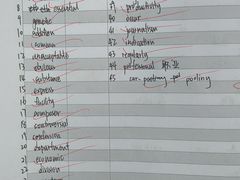 8 essential
9 remote
10 addition
11 common
12 unacceptable
13 obtain
14 substance
15 express
16 facility
17 composer
18 controversial
19 conscious
20 department
21 economic
22 division
39 productivity
40 occur
41 journalism
42 indication
43 regularly
44 professional 职业
45 car pooling